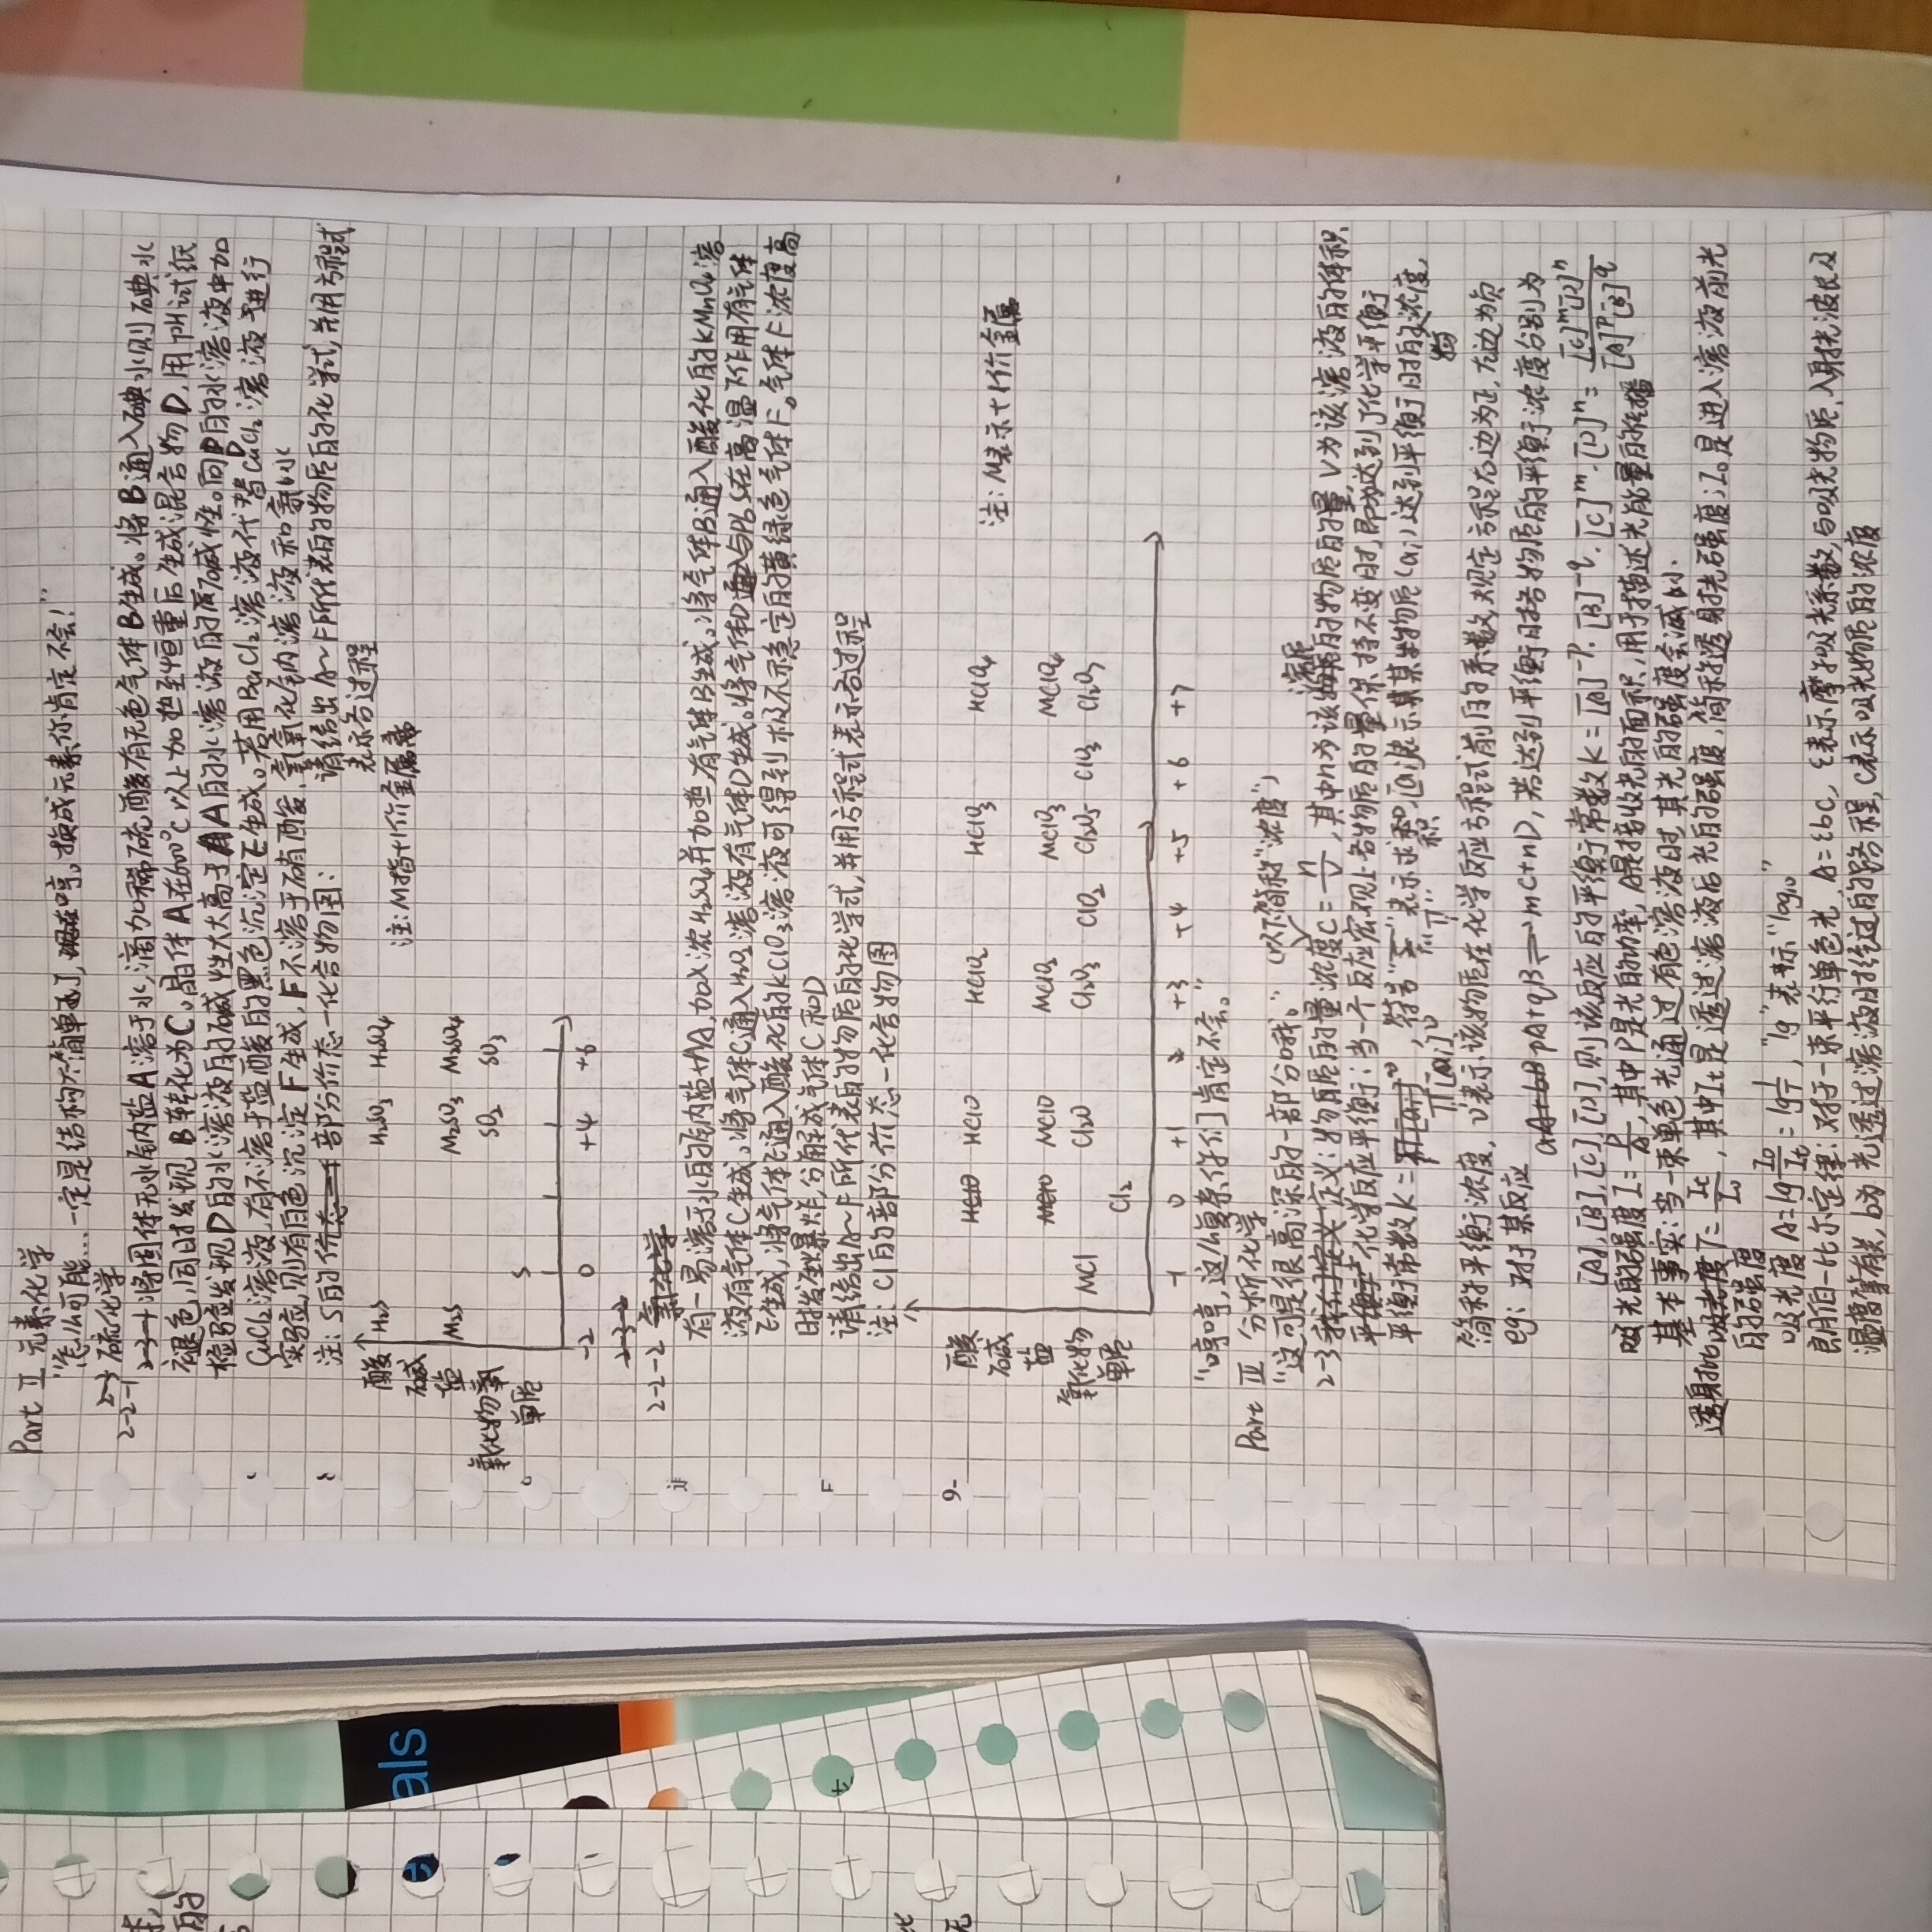 Part II 元素化学
"怎么可能……一定是结构太简单了,哼。换成元素你肯定不会!"
2-2-1 硫化学
将固体无水钠盐A溶于水,滴加稀硫酸有无色气体B生成。将B通入碘水则碘水
褪色,同时发现B转化为C。晶体A在600°C以上加热至恒重后生成混合物D,用pH试纸
检验发现D的水溶液的碱性大大高于A的水溶液的碱性。向D的水溶液中加
CuCl₂溶液,有不溶于盐酸的黑色沉淀E生成。若用BaCl₂溶液代替CuCl₂溶液进行
实验,则有白色沉淀F生成,F不溶于硝酸、氢氧化钠溶液和氨水
请给出A~F所代表的物质的化学式,并用方程式
表示各过程
注:S的部分价态—化合物图:
注:M指+1价金属
酸 H₂S H₂SO₃ H₂SO₄
碱
盐 M₂S M₂SO₃ M₂SO₄
氧化物 SO₂ SO₃
单质 S
-2 0 +4 +6
2-2-2 氯化学
有一易溶于水的钠盐A,加入浓H₂SO₄并加热有气体B生成。将气体B通入酸化的KMnO₄溶
液有气体C生成。将气体C通入H₂O₂溶液有气体D生成。将气体D与S在高温下作用有气体
E生成,将气体E通入酸化的KClO₃溶液可得到极不稳定的黄绿色气体F。气体F浓度高
时发生爆炸,分解成气体C和D
请给出A~F所代表的物质的化学式,并用方程式表示各过程
注:Cl的部分价态—化合物图
注:M表示+1价金属
酸 HClO HClO₂ HClO₃ HClO₄
碱
盐 MCl MClO MClO₂ MClO₃ MClO₄
氧化物 Cl₂O Cl₂O₃ ClO₂ Cl₂O₅ ClO₃ Cl₂O₇
单质 Cl₂
-1 0 +1 +3 +4 +5 +6 +7
"哼哼,这么复杂你们肯定不会。"
Part III 分析化学
"这可是很高深的一部分哦。" (以下简称"浓度")
2-3 定义:物质的量浓度C=n/V,其中n为该溶质的物质的量,V为该溶液的体积
化学反应平衡:当一个反应宏观上各物质的量保持不变时,即达到了化学平衡
平衡常数K=Π[ai]^υ,符号"Π"表示求积,[ai]表示某物质(ai)达到平衡时的浓度,
简称平衡浓度,υ表示该物质在化学反应方程式前的系数,规定方程右边为正,左边为负
eg:对于某反应 pA+qB⇌mC+nD,若达到平衡时各物质的平衡浓度分别为
[A],[B],[C],[D],则该反应的平衡常数K=[A]^-p·[B]^-q·[C]^m·[D]^n=[C]^m[D]^n/[A]^p[B]^q
吸光的强度I=P/A,其中P是光的功率,A是接收光的面积,用于描述光能量的传播
基本事实:当一束单色光通过有色溶液时,其光的强度会减小.
透射比T=It/I₀,其中It是透过溶液后光的强度,简称透射光强度;I₀是进入溶液前光
的强度
吸光度A=lg I₀/It=lg 1/T,"lg"表示"log₁₀"
朗伯-比尔定律:对于一束平行单色光,A=εbc,ε表示摩尔吸光系数,与吸光物质,入射光波长及
温度等有关,b为光透过溶液时经过的路程,c表示吸光物质的浓度
als